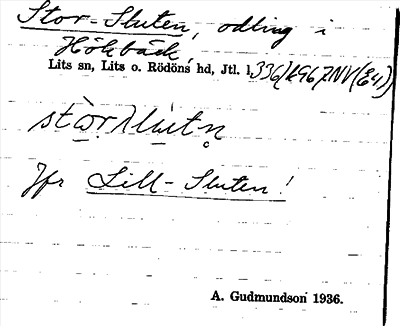 Stor-Sluten, odling i
Hökbäck,
Lits sn, Lits o. Rödöns hd, Jtl. l.
stòrslùtn̥
Jfr Lill-Sluten!
A. Gudmundson 1936.